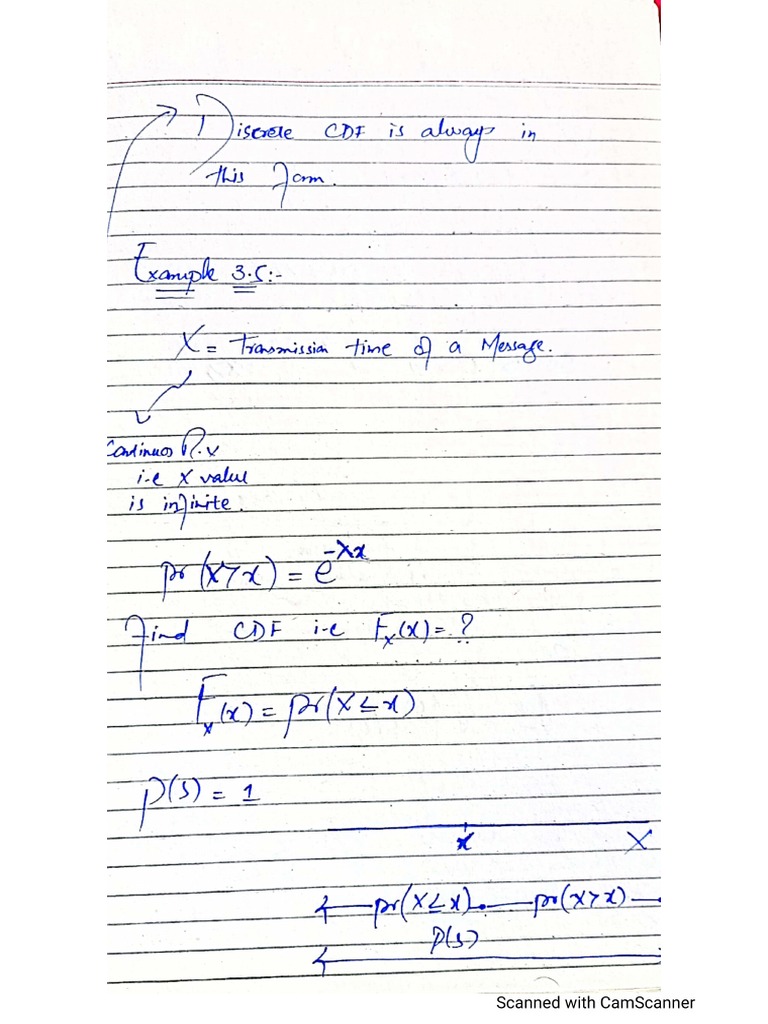 Discrete CDF is always in
this form.
Example 3.5:-
X = Transmission time of a Message.
Continuos R.v
i.e X value
is infinite.
pr(X>x) = e^-λx
Find CDF i.e Fx(x) = ?
Fx(x) = pr(X≤x)
P(S) = 1
x X
pr(X≤x) pr(X>x)
P(S)
Scanned with CamScanner